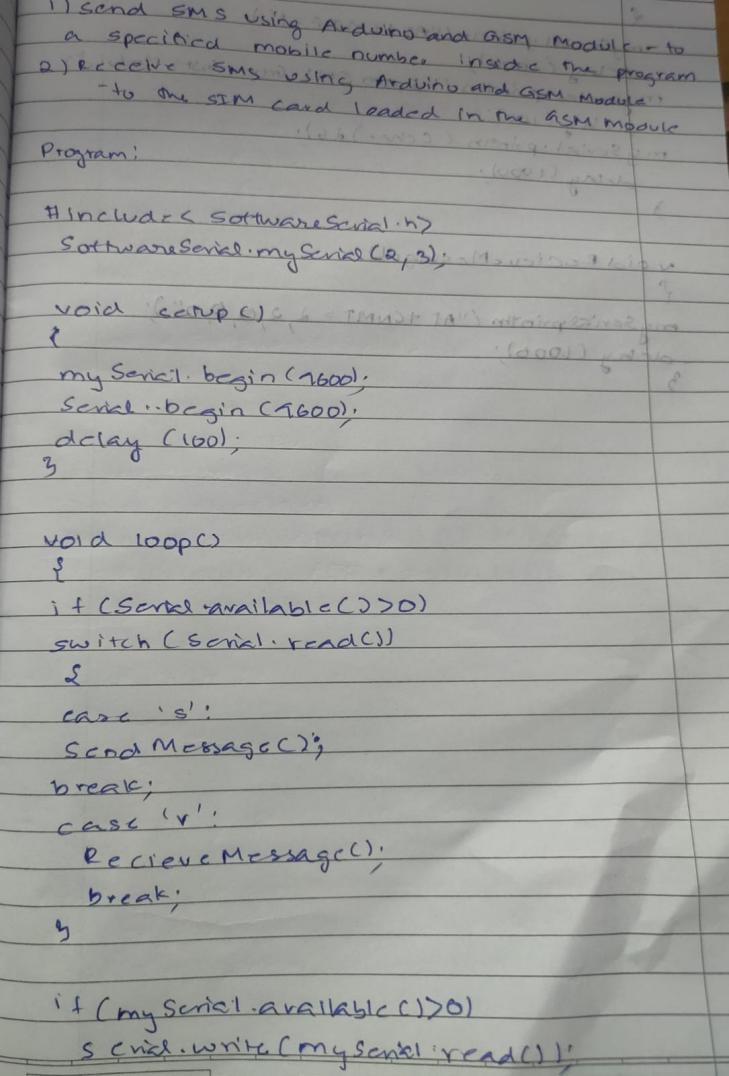 1) Send SMS using Arduino and GSM Module - to
a specified mobile number inside the program
2) Receive SMS using Arduino and GSM Module
- to the SIM card loaded in the GSM module
Program:
#include < SoftwareSerial.h>
SoftwareSerial.mySerial (2,3);
void setup ()
{
mySerial. begin (9600);
Serial..begin (9600);
delay (100);
}
void loop()
{
if (Serial.available()>0)
switch (Serial.read())
{
case 's':
Send Message();
break;
case 'r':
RecieveMessage();
break;
}
if (mySerial.available()>0)
serial.write (mySerial.read());